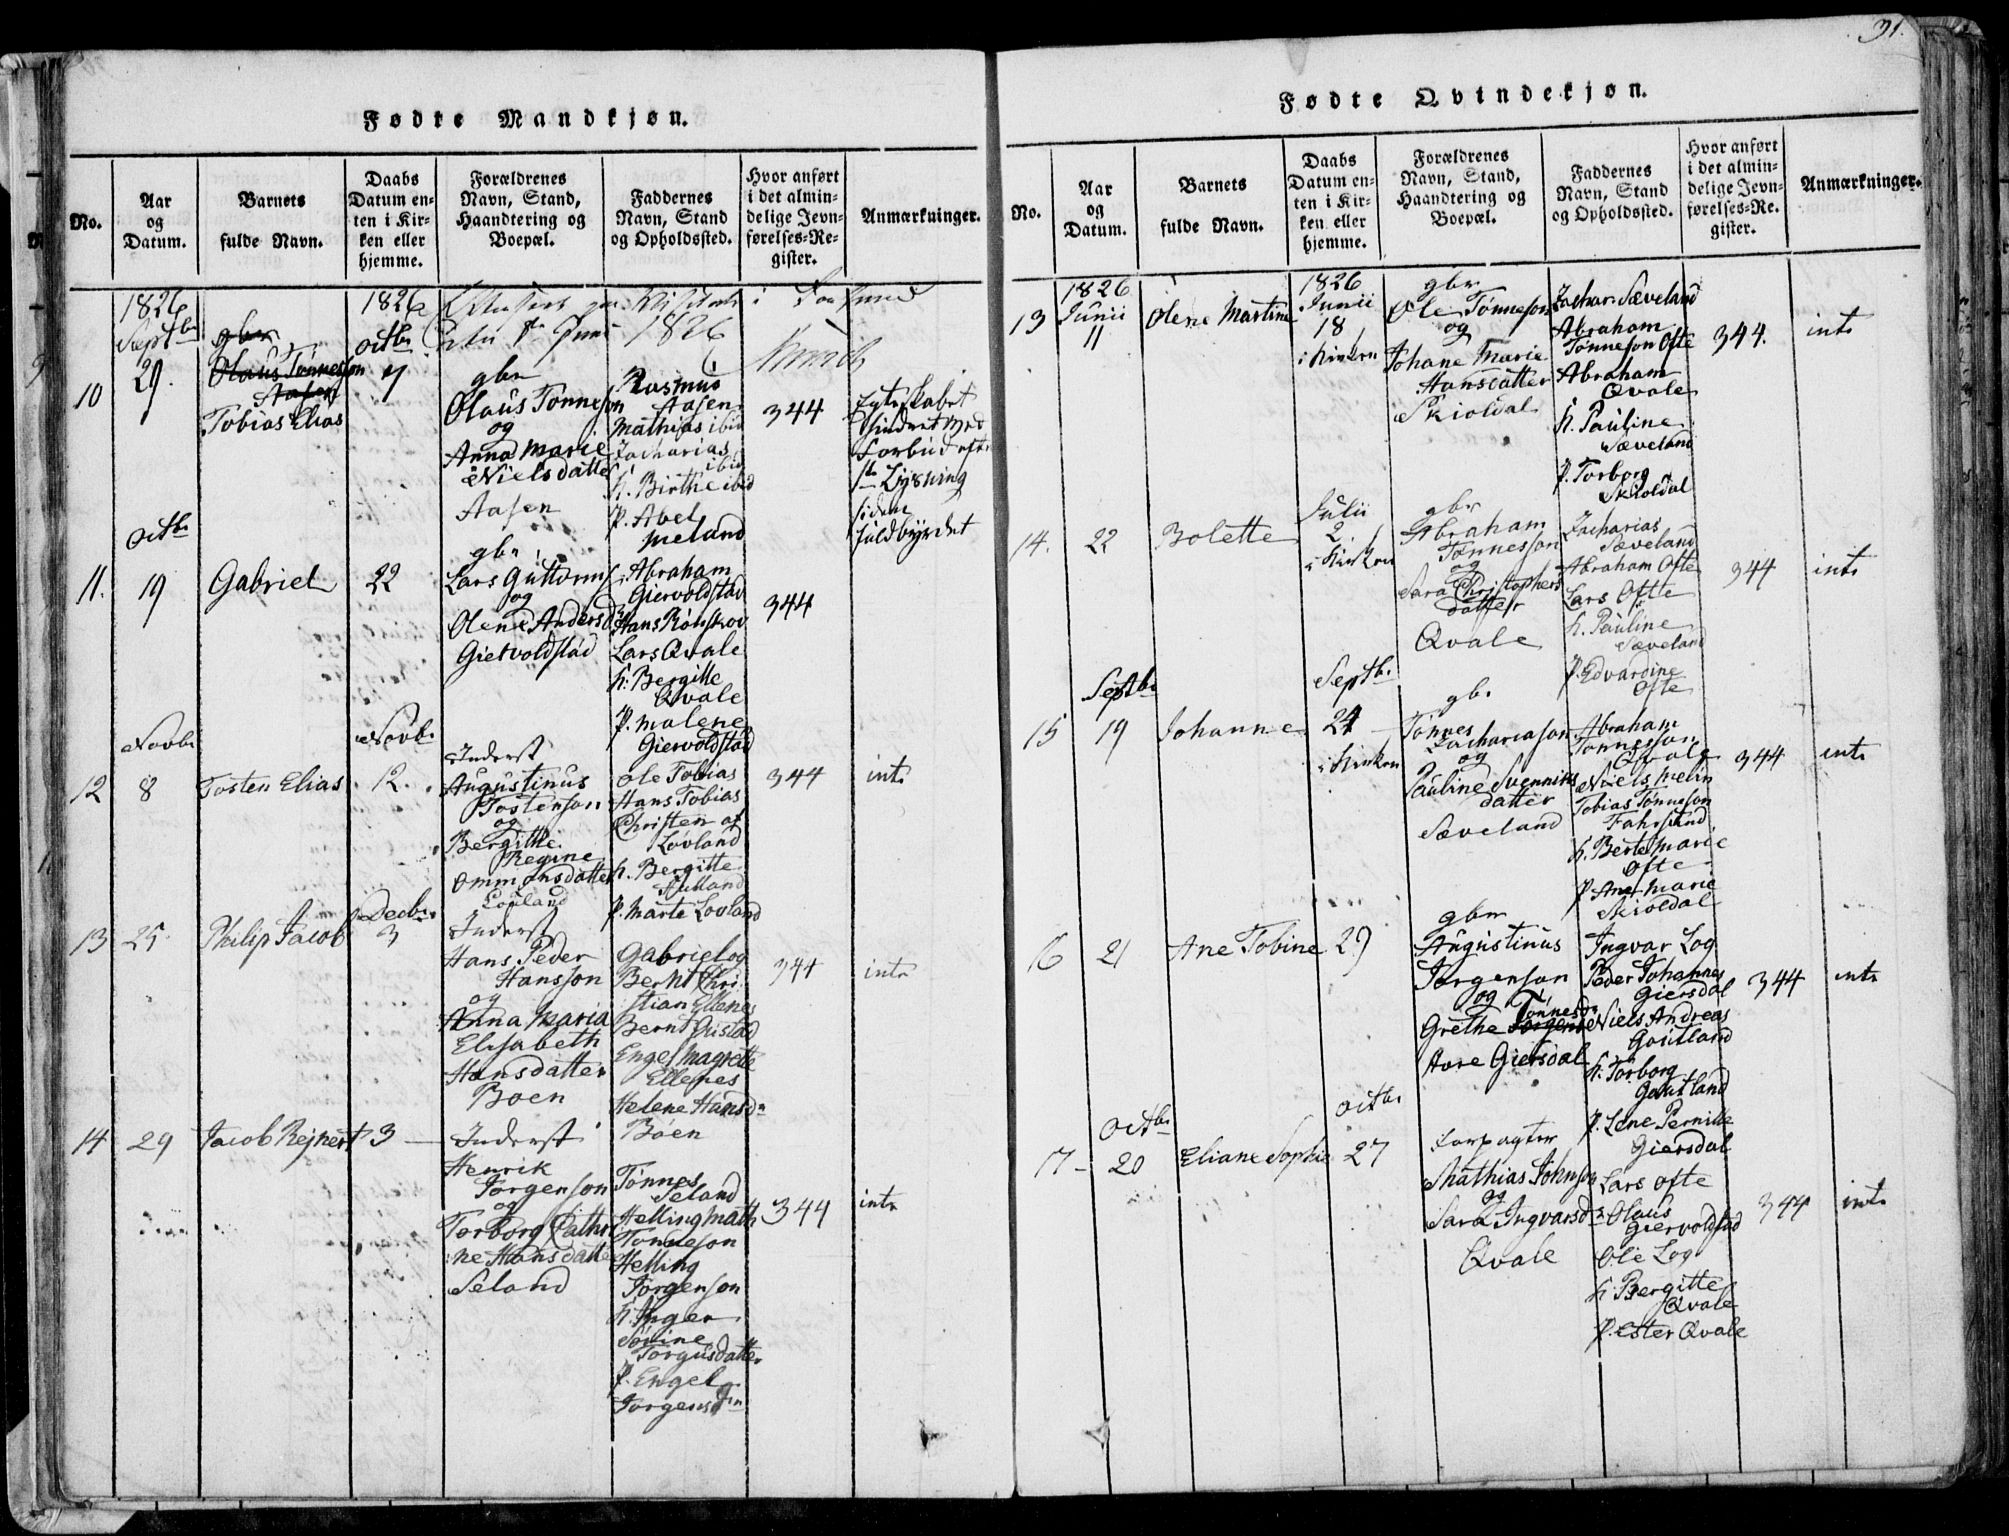 31.
Fødte Mandkjøn.
No.
Aar
og
Datum.
Barnets
fulde Navn.
Daabs
Datum en-
ten i Kir-
ken eller
hjemme.
Forældrenes
Navn, Stand,
Haandtering og
Boepæl.
Faddernes
Navn, Stand
og Opholdssted.
Hvor anført
i det almin-
delige Jevn-
førelses-Re-
gister.
Anmærkninger.
1826
1826
1826
Septbr
octbr
10
29.
gbr
Olaus Tønnesson
Aasen
Tobias Elias
7
gbr
Olaus Tønneson
og
Anna Marie
Nielsdatter
Aasen
Rasmus
Aasen
Mathias ibid
Zacharias
ibid
h. Birthe ibid
p. Abel
Meland
344
Egteskabet
hindret ved
Forbud efter
Lysning
siden
fuldbyrdet
octbr
11.
19
Gabriel
22
gbr
Lars Guttorms
og
Olene Andersd
Giervoldstad
Abraham
Giervoldstad
Hans Rønskov
Lars Qvale
h. Bergitte
Qvale
p. Malene
Giervoldstad
344
Novbr
Novbr
12
8
Tosten Elias
12.
Inderst
Augustinus
Tostenson
og
Bergithe
Regine
Ommonsdatter
Lovland
Ole Tobias
Hans Tobias
Christen af
Lovland
h. Bergitte
p. Marte Lovland
344
intr
Decbr
13
25
Philip Jacob
3
Inderst
Hans Peder
Hansson
og
Anna Maria
Elisabeth
Hansdatter
Boen
Gabriel og
Bernt Chri-
stian Ellenes
Bernt
Engel Magrette
Ellenes
Helene Hansdr
Boen
344
intr
14
29
Jacob Rejnert
3
Inderst
Henrik
Jørgenson
og
Torborg Cathri
ne Hansdatter
Seland
Tønnes
Seland
Helling Math
Tønneson
Helling
Jørgenson
h. Inger
Sørine
Torgusdatter
p. Engel
Jorgensdr
344
intr
Fødte Qvindekjøn.
No.
Aar
og
Datum.
Barnets
fulde Navn.
Daabs
Datum en-
ten i Kir-
ken eller
hjemme.
Forældrenes
Navn, Stand,
Haandtering og
Boepæl.
Faddernes
Navn, Stand
og Opholdssted.
Hvor anført
i det almin-
delige Jevn-
førelses-Re-
gister.
Anmærkninger.
13
1826
Junii
11
Olene Martine
1826
Junii
18
i Kirken
gbr
Ole Tønneson
og
Johane Marie
Hansdatter
Skioldal
Zachar. Sæveland
Abraham
Tønneson Ofte
Abraham
Qvale
h. Pauline
Sæveland
p. Torborg
Skioldal
344.
intr
14.
22
Bolette
Julii
2
i Kirken
gbr
Abraham
Tønnesson
og
Sara Christophers
datter
Qvale
Zacharias
Sæveland
Abraham Ofte
Lars Ofte
h. Pauline
Sæveland
p. Edvardine
Ofte
344
intr
Septbr
15
19
Johanne
Septbr
24
i Kirken
gbr
Tønnes
Zachariason
og
Pauline Svennings
datter
Sæveland
Abraham
Tønnesson
Qvale
Niels Melin
Tobias Tønneson
Fahrsund
h. Berte Marie
Ofte
p. Ane Marie
Skioldal
344
intr
16
21
Ane Tobine
29
gbr
Augustinus
Jørgenson
og
Tønnesdr
Grethe Jørgens
Aore Giersdal
Ingvar Log
Peder Johannes
Giersdal
Niels Andreas
Goutland
h. Torborg
Goutland
p. Lene Pernille
Giersdal
344
intr
octbr
17
20
Eliane Sophie
octbr
27
Forpagter
Mathias Johnson
og
Sara Ingvarsdr
Qvale
Lars Ofte
Olaus
Giervoldstad
Ole Log
h. Bergitte
Qvale
p. Ester Qvale
344
intr